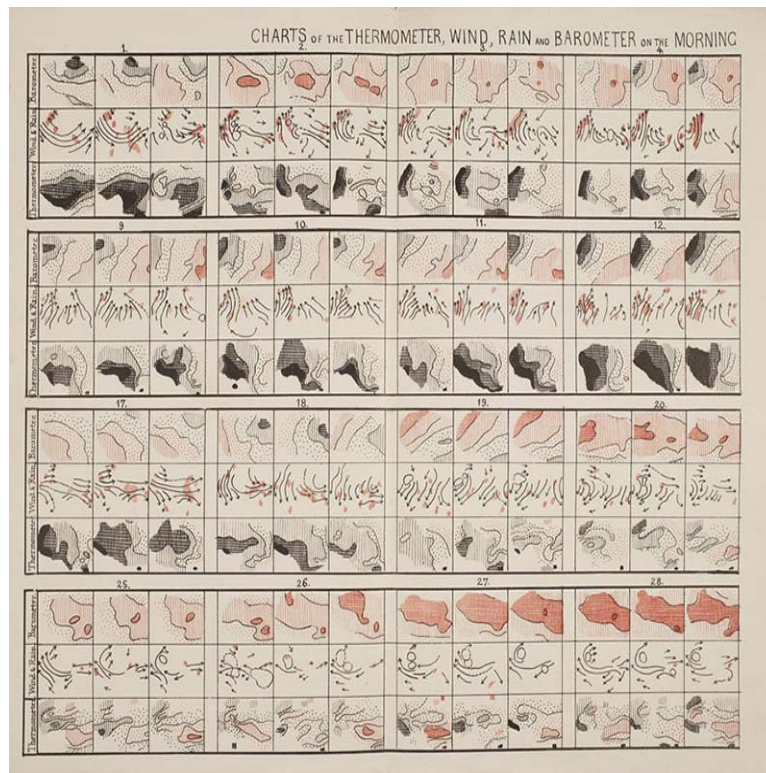 CHARTS OF THE THERMOMETER, WIND, RAIN AND BAROMETER ON THE MORNING
1. 2. 3. 4.
Barometer.
Wind & Rain.
Thermometer.
9 10. 11. 12.
Barometer.
Wind & Rain.
Thermometer.
17. 18. 19. 20.
Barometer.
Wind & Rain.
Thermometer.
25. 26. 27. 28.
Barometer.
Wind & Rain.
Thermometer.